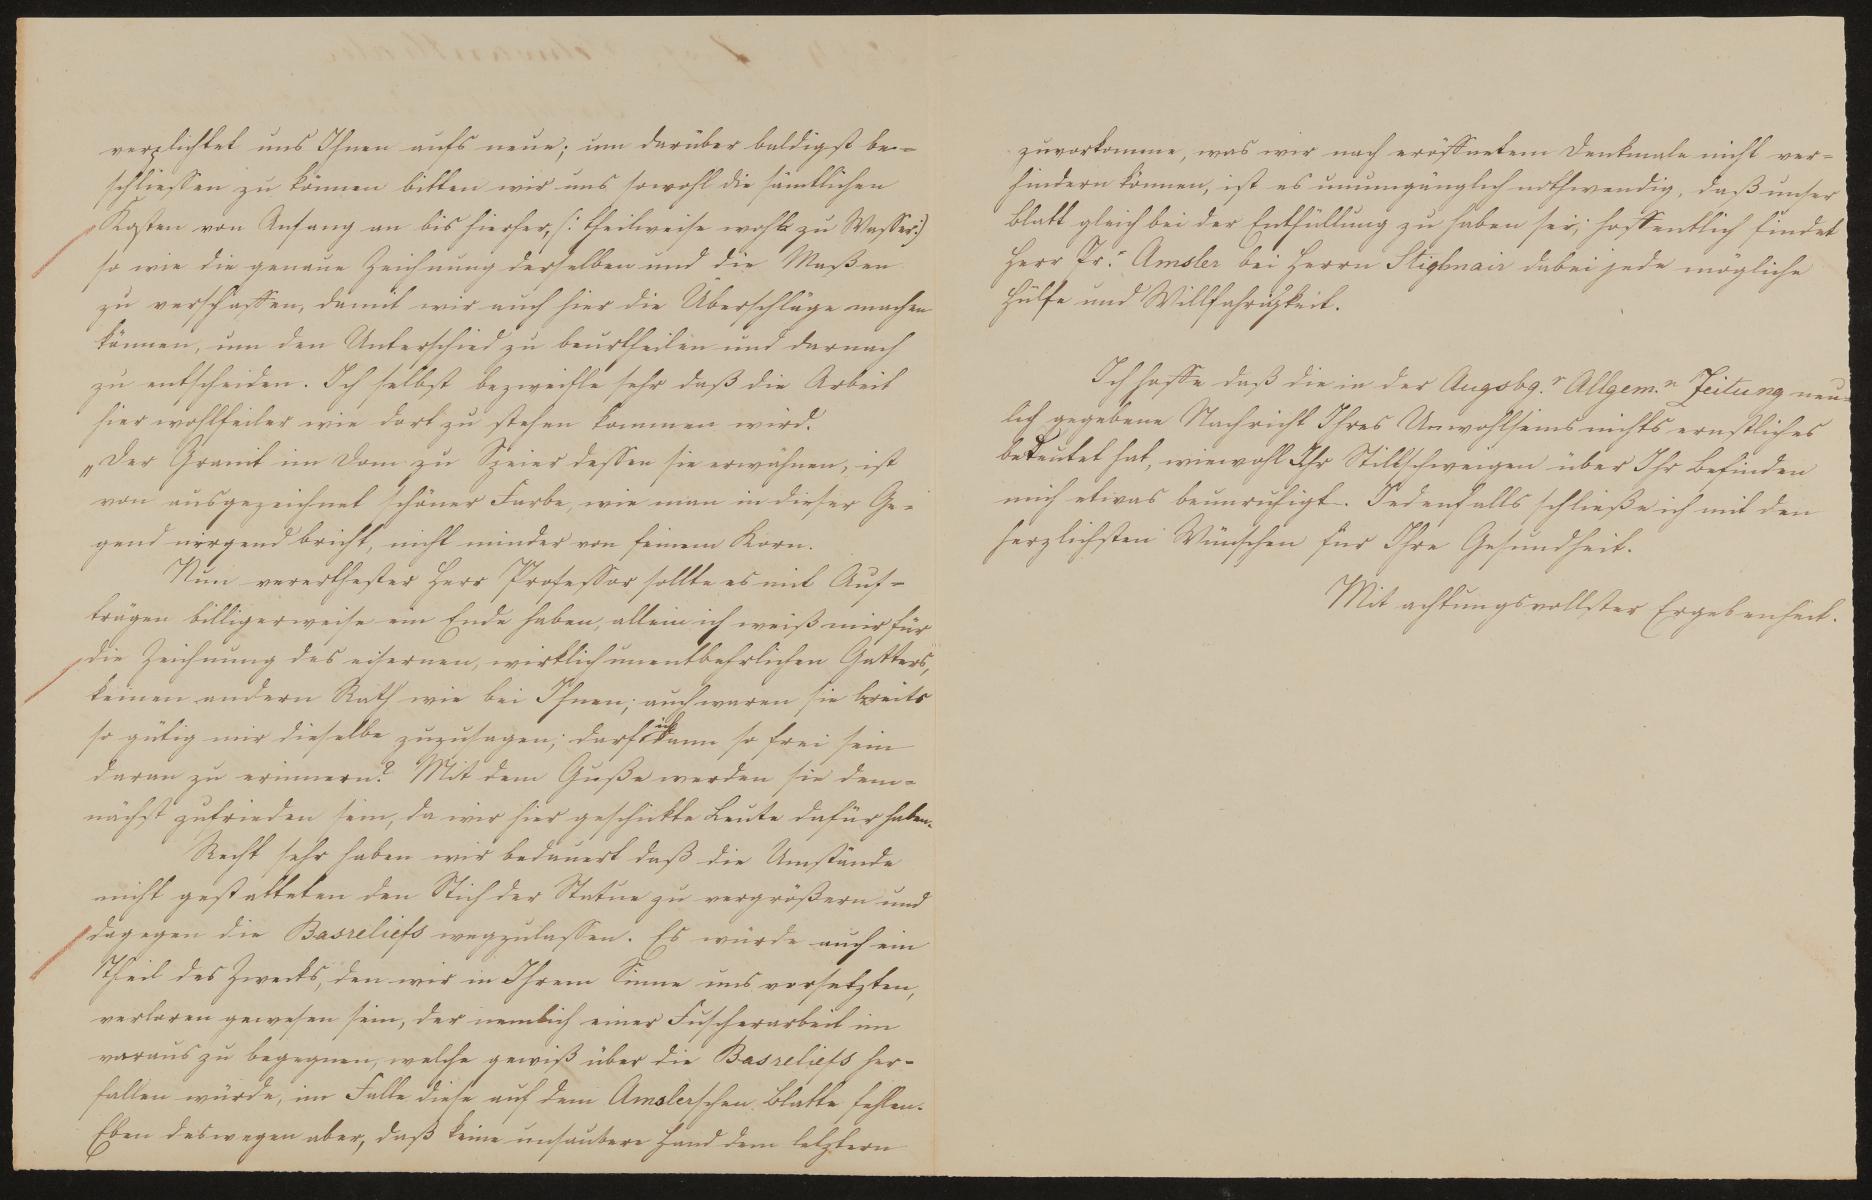 verpflichtet uns Ihnen aufs neue; um darüber baldigst be-
schliessen zu können bitten wir uns sowohl die sämtlichen
Kosten von Anfang an bis hierher, (: theilweise wohl zu Wasser:)
so wie die genaue Zeichnung derselben und die Maßen
zu verschaffen, damit wir auch hier die Überschläge machen
können, um den Unterschied zu beurtheilen und darnach
zu entscheiden. Ich selbst bezweifle sehr daß die Arbeit
hier wohlfeiler wie dort zu stehen kommen wird.
„Der Granit im Dom zu Speier dessen sie erwähnen, ist
von ausgezeichnet schöner Farbe, wie man in dieser Ge-
gend nirgend bricht, nicht minder von feinem Korn.
Nun verehrtester Herr Professor sollte es mit Auf-
trägen billigerweise ein Ende haben, allein ich weiß mir für
die Zeichnung des eisernen, wirklich unentbehrlichen Gatters,
keinen andern Rath wie bei Ihnen; auch waren sie bereits
so gütig mir dieselbe zuzusagen; darf ich dann so frei sein
daran zu erinnern? Mit dem Guße werden sie dem-
nächst zufrieden sein, da wir hier geschickte Leute dafür haben.
Recht sehr haben wir bedauert daß die Umstände
nicht gestatteten den Stich der Statue zu vergrößern und
dagegen die Basreliefs wegzulassen. Es würde auch ein
Theil des Zwecks, den wir in Ihrem Sinne uns vorsetzten,
verloren gewesen sein, der nemlich einer Fuscherarbeit im
voraus zu begegnen, welche gewiß über die Basreliefs her-
fallen würde, im Falle diese auf dem Amslerschen Blatte fehlen.
Eben deswegen aber, daß keine unsaubere Hand dem letztern
zuvorkomme, was wir nach eröffnetem Denkmale nicht ver-
hindern können, ist es unumgänglich nothwendig, daß unser
Blatt gleich bei der Enthüllung zu haben sei; hoffentlich findet
Herr Pr.r Amsler bei Herrn Stiglmair dabei jede mögliche
Hülfe und Willfährigkeit.
Ich hoffe daß die in der Augsbg.r Allgem.n Zeitung neu-
lich gegebene Nachricht Ihres Unwohlseins nichts ernstliches
bedeutet hat, wiewohl Ihr Stillschweigen über Ihr Befinden
mich etwas beunruhigt. Jedenfalls schließe ich mit den
herzlichsten Wünschen für Ihre Gesundheit.
Mit achtungsvollster Ergebenheit.